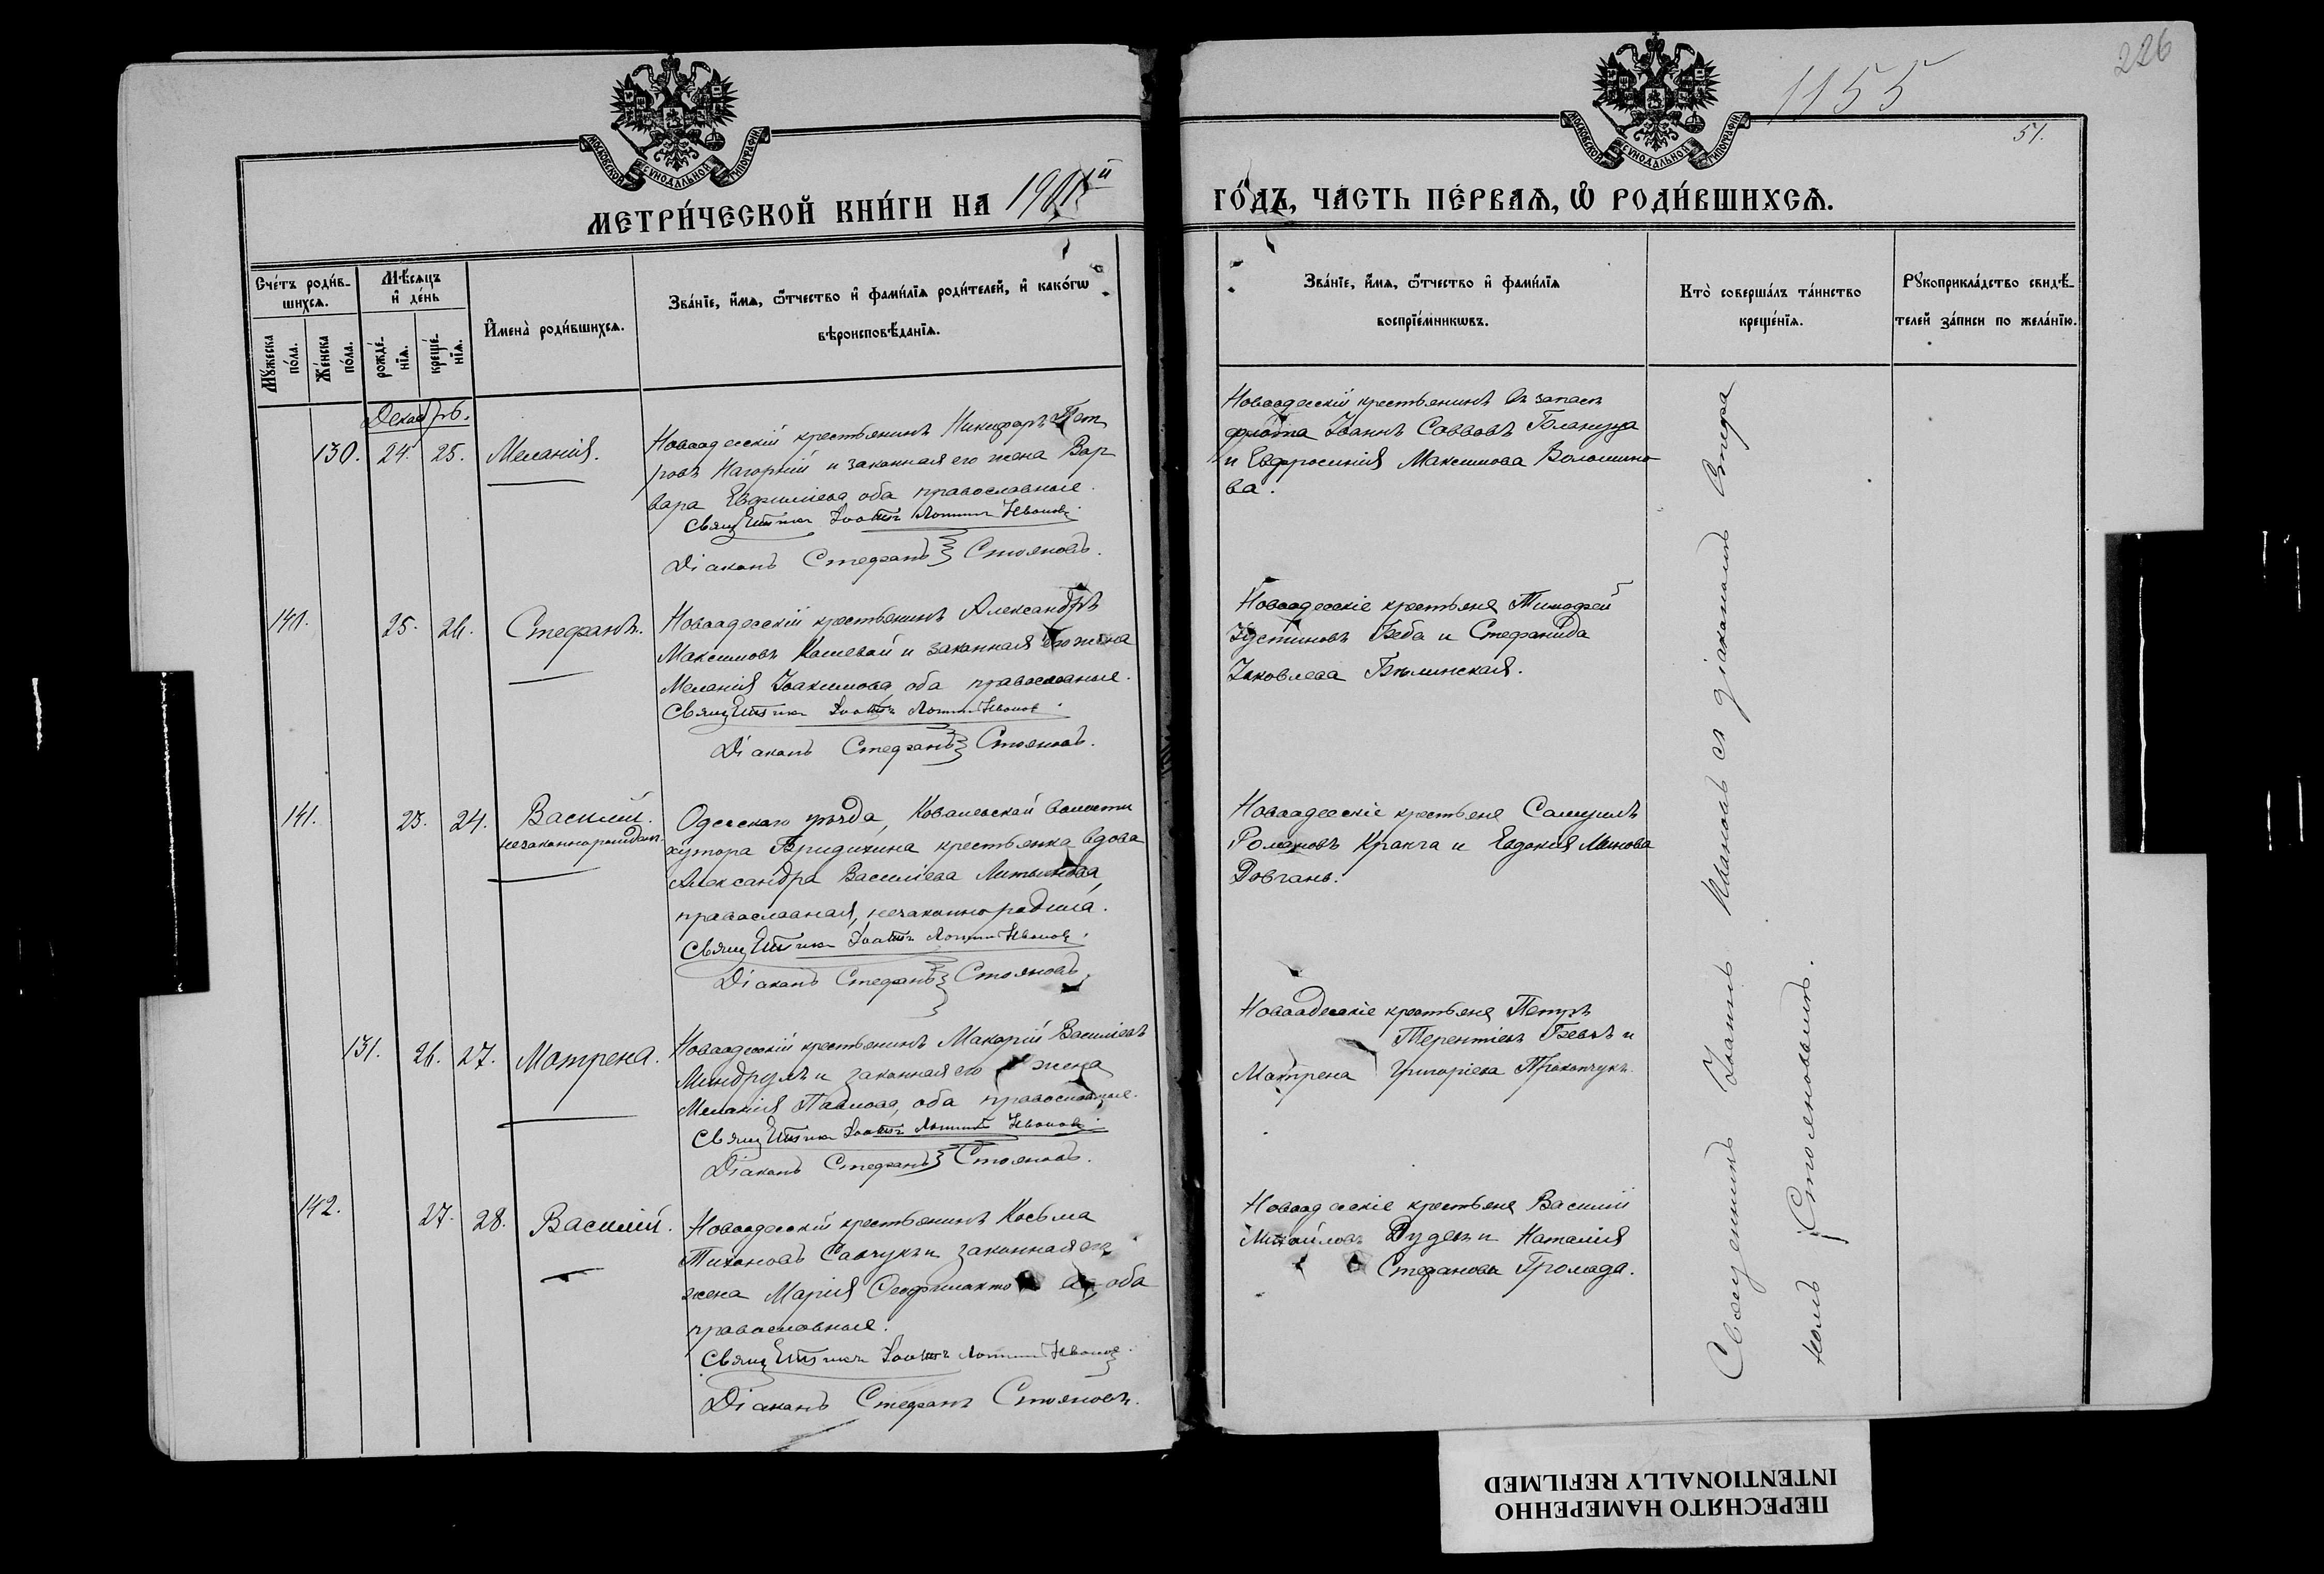 226
1155
51.
МОСКОВСКОЙ СѴНОДАЛЬНОЙ ТИПОГРАФІИ
МОСКОВСКОЙ СѴНОДАЛЬНОЙ ТИПОГРАФІИ
МЕТРИ́ЧЕСКОЙ КНИ́ГИ НА 1901й ГО́ДЪ, ЧА́СТЬ ПЕ́РВАѦ, Ѽ РОДИ́ВШИХСѦ.
Сче́тъ роди́в-
шихсѧ.
Мꙋ́жеска по́ла.
Же́нска по́ла.
Мѣ́сѧцъ и҆ де́нь
рожде́-
нїѧ.
креще́-
нїѧ.
И҆мена̀ роди́вшихсѧ.
Зва́нїе, и҆́мѧ, ѻ҆́тчество и҆ фами́лїѧ роди́телей, и҆ како́гѡ
вѣроисповѣ́данїѧ.
Зва́нїе, и҆́мѧ, ѻ҆́тчество и҆ фами́лїѧ
воспрїе́мникѡвъ.
Кто̀ соверша́лъ та́инство
креще́нїѧ.
Рꙋкоприкла́дство свидѣ́-
телей за́писи по жела́нїю.
Декабрь.
130. 24. 25. Меланія.
Новоодесскій крестьянинъ Никифоръ Пет
ровъ Нагорный и законная его жена Вар
вара Евфиміева, оба православные.
Священникъ Іоаннъ Ивановъ.
Діаконъ Стефанъ Стояновъ.
Новоодесскій крестьянинъ въ запасѣ
флота Іоаннъ Саввовъ
и Евфросинія Максимова Волошино-
ва.
141. 25. 26. Стефанъ.
Новоодесскій крестьянинъ Александръ
Максимовъ Кошевой и законная его жена
Меланія Іоакимова, оба православные.
Священникъ Іоаннъ Ивановъ.
Діаконъ Стефанъ Стояновъ.
Новоодесскіе крестьяне Тимофей
Іустиновъ Беба и Стефанида
Іаковлева Бѣлинская.
141. 23. 24. Василій.
незаконнорожден.
Одесскаго уѣзда, Ковалевской волости
хутора крестьянка вдова
Александра Василіева
православная, незаконно родила.
Священникъ Іоаннъ Ивановъ.
Діаконъ Стефанъ Стояновъ.
Новоодесскіе крестьяне Самуилъ
Романовъ Кракча и Евдокія Минова
Довгань.
131. 26. 27. Матрена.
Новоодесскій крестьянинъ Макарій Василіевъ
Миндрулъ и законная его жена
Меланія Павлова, оба православные.
Священникъ Іоаннъ Ивановъ.
Діаконъ Стефанъ Стояновъ.
Новоодесскіе крестьяне Петръ
Терентіевъ Бевзъ и
Матрена Григоріева Прокопчукъ.
142. 27. 28. Василій.
Новоодесскій крестьянинъ Косьма
Тихоновъ Савчукъ и законная его
жена Марія Феофилактова, оба
православные.
Священникъ Іоаннъ Ивановъ.
Діаконъ Стефанъ Стояновъ.
Новоодесскіе крестьяне Василій
Михайловъ Дудевъ и Наталія
Стефанова Громада.
Священникъ Іоаннъ Ивановъ съ діакономъ Стефа
номъ Стояновымъ.
ПЕРЕСНЯТО НАМЕРЕННО
INTENTIONALLY REFILMED